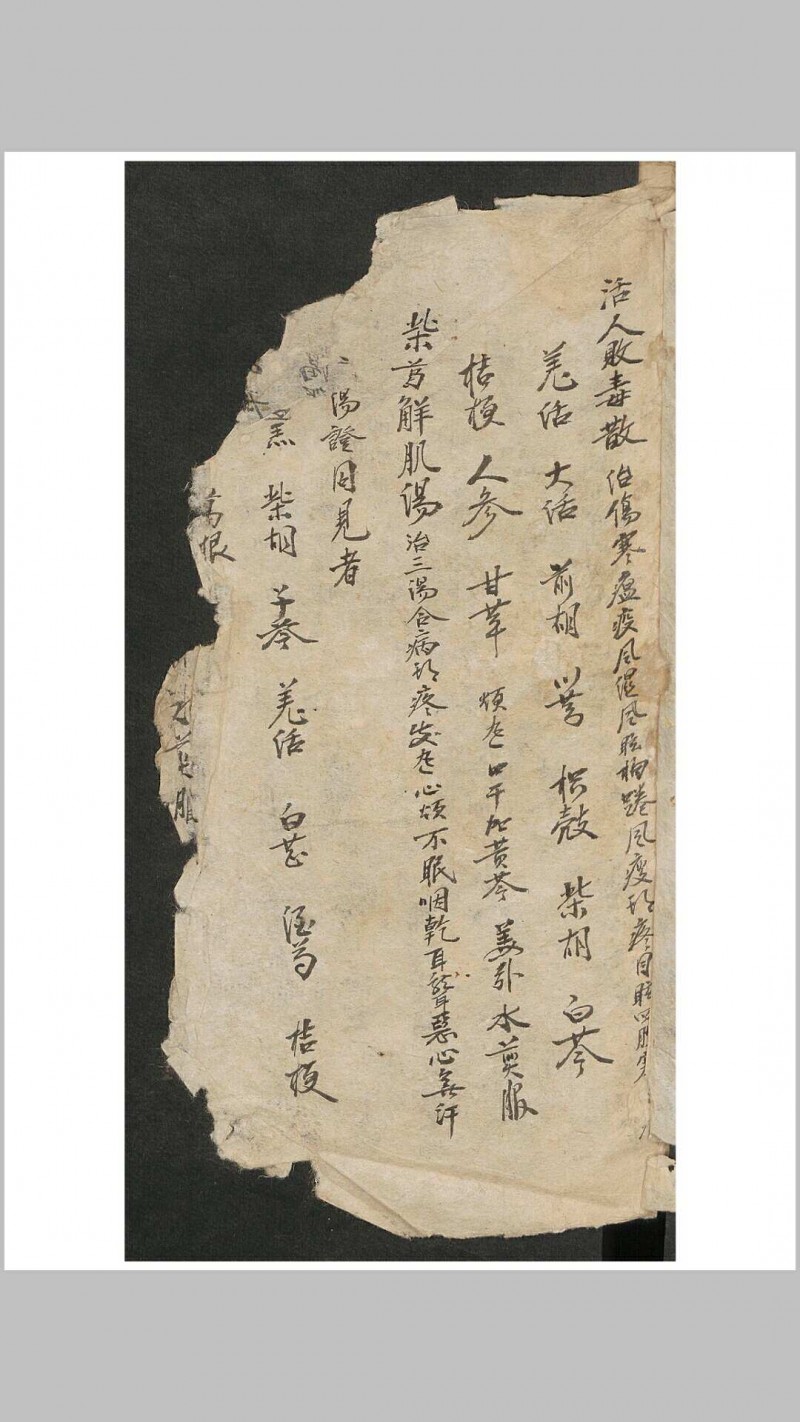 活人敗毒散 治傷寒瘟疫風濕風眩拘踡風痰頭疼目眩四肢
羗活 大活 前胡 川芎 枳殼 柴胡 白苓
桔梗 人參 甘草 煩熱口干加黄芩 姜引水煎服
柴葛解肌湯 治三陽合病頭疼發熱心煩不眠咽乾耳聾惡心無汗
陽證同見者
柴胡 子芩 羗活 白芷 桔梗
葛根
煎服